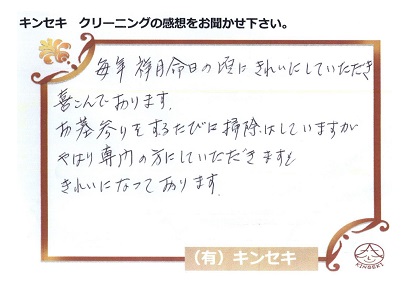 キンセキ　クリーニングの感想をお聞かせ下さい。
毎年祥月命日の頃にきれいにしていただき
喜こんであります。
お墓参りをするたびに掃除はしていますが
やはり専門の方にしていただきますと
きれいになってあります。
（有）キンセキ
KINSEKI